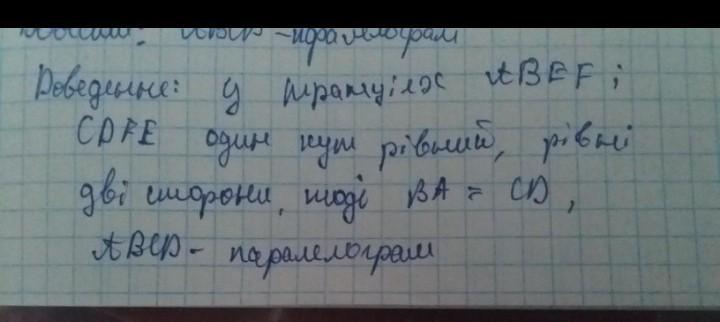 ABCD - паралелограм
Доведення: У трапеціях ABEF і
CDFE один кут рівний, рівні
дві сторони, тоді BA = CD,
ABCD - паралелограм